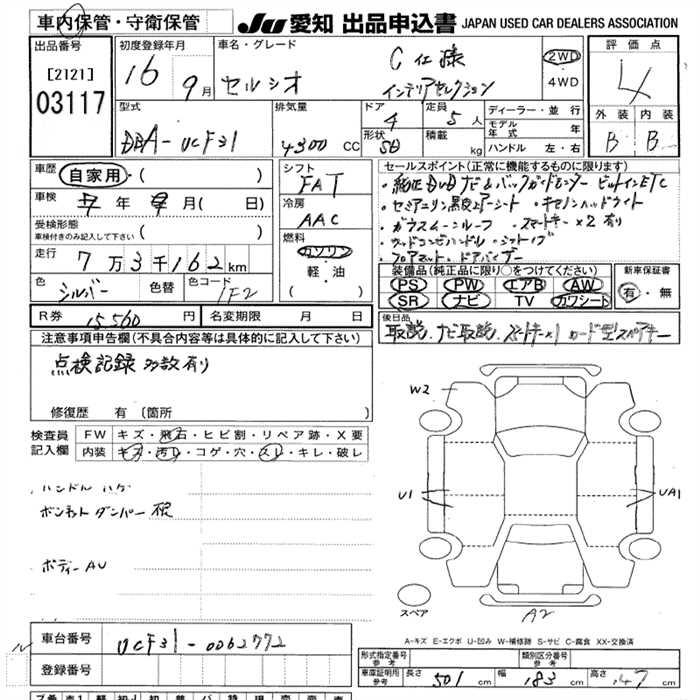 車内保管・守衛保管
JU 愛知 出品申込書 JAPAN USED CAR DEALERS ASSOCIATION
出品番号
[2121]
03117
初度登録年月
16 9月
車名・グレード
セルシオ
C仕様
インテリアセレクション
2WD
4WD
評価点
4
外装 内装
B B
型式
DBA-UCF31
排気量
4300 CC
ドア
4
形状
SD
定員
5人
積載
kg
ディーラー・並行
モデル年式 年
ハンドル 左・右
車歴
自家用・( )
車検
年 月( 日)
受検形態
車検付きのみ記入して下さい ( )
走行
7万3千162km
色
シルバー
色替
色コード
1F2
シフト
FAT
冷房
AAC
燃料
ガソリン
軽・油
( )
セールスポイント(正常に機能するものに限ります)
・純正DVDナビ&バックガイドモニター ビルトインETC
・セミアニリン黒革エアーシート ・キセノンヘッドライト
・ガラスムーンルーフ ・スマートキー×2有り
・ウッドコンビハンドル・シフトノブ
・フロアマット・ドアバイザー
装備品(純正品に限り○をつけてください)
PS PW エアB AW
SR ナビ TV カワシート
新車保証書
有・無
R券
15560 円
名変期限 月 日
後日品
取説、ナビ取説、スマートキー×1 カード型スペアキー
注意事項申告欄(不具合内容等は具体的に記入して下さい)
点検記録多数有り
修復歴 有(箇所 )
検査員
記入欄
FW キズ・飛石・ヒビ割・リペア跡・X要
内装 キズ・汚れ・コゲ・穴・スレ・キレ・破レ
ハンドル ハゲ
ボンネットダンパー
ボディーAU
W2
U1
UA1
A2
スペア
A-キズ E-エクボ U-凹み W-補修跡 S-サビ C-腐食 XX-交換済
車台番号
UCF31-0062772
登録番号
形式指定番号
参考
類別区分番号
参考
車庫証明用
参考
長さ 501 cm 幅 183 cm 高さ 147 cm